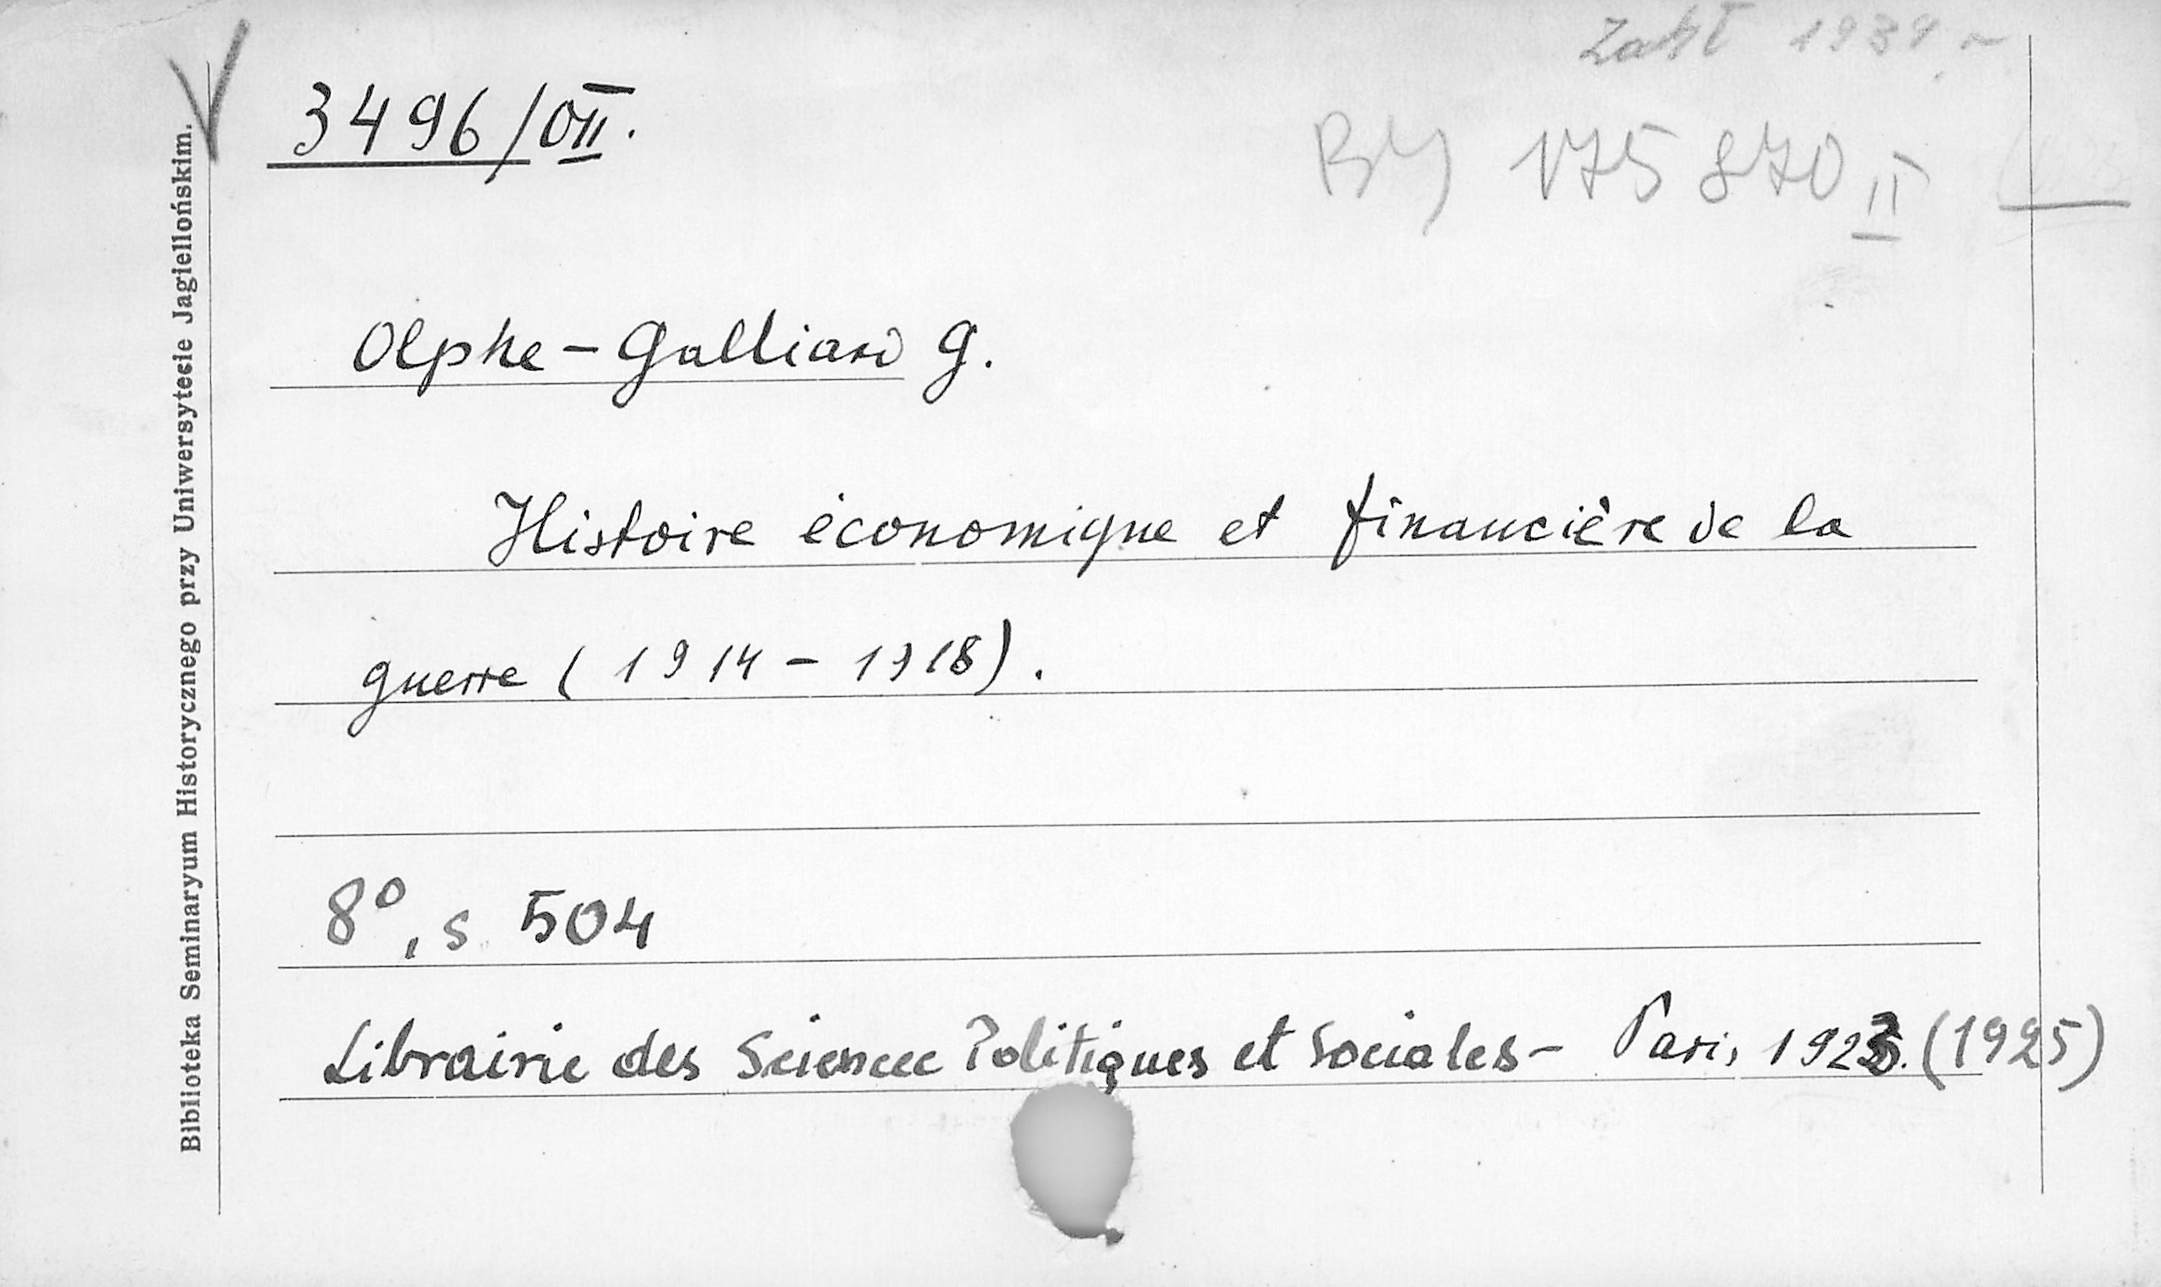 3496/OII.
BJ 175 870 II
Olphe-Galliard G.
Histoire économique et financière de la
guerre (1914-1918).
8°, s 504
Librairie des Sciences Politiques et Sociales - Paris 1923. (1925)
Biblioteka Seminaryum Historycznego przy Uniwersytecie Jagiellońskim.